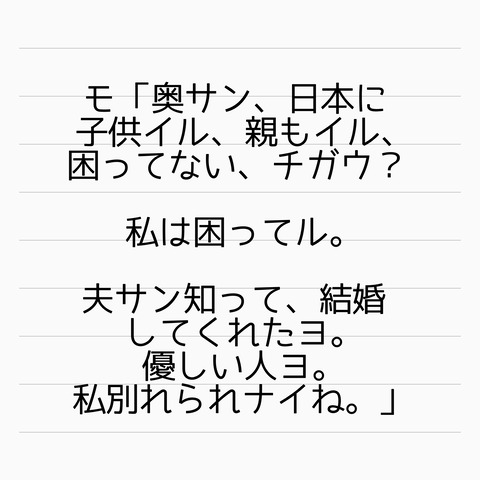 モ「奥サン、日本に
子供イル、親もイル、
困ってない、チガウ？
私は困ってル。
夫サン知って、結婚
してくれたヨ。
優しい人ヨ。
私別れられナイね。」